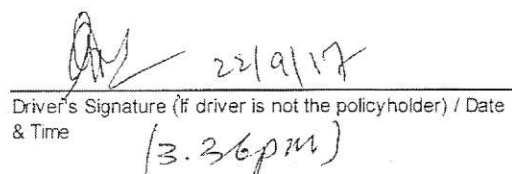 22/9/17
Driver's Signature (If driver is not the policyholder) / Date
& Time
(3.36pm)